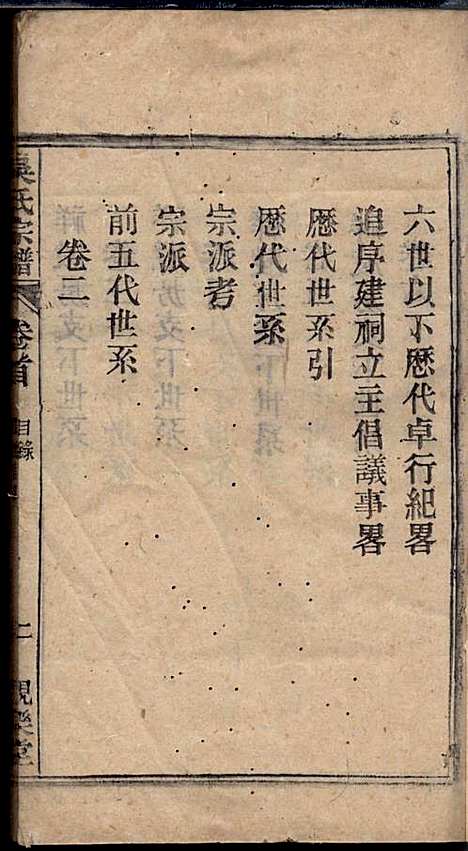 六世以下歷代卓行紀畧
追序建祠立主倡議事畧
歷代世系引
歷代世系
宗派考
宗派
前五代世系
卷三
吳氏宗譜
卷首
目錄
二
觀樂堂